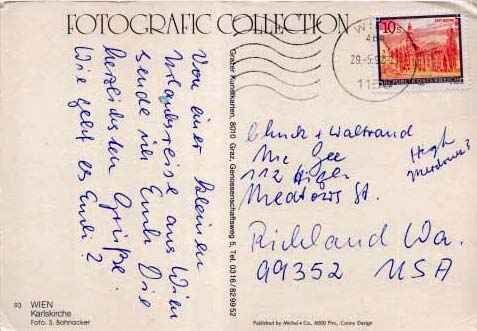 FOTOGRAFIC COLLECTION
Von einer kleinen
Urlaubsreise aus Wien
sende ich Euch die
herzlichsten Grüße.
Wie geht es Euch?
Grazer Kundkarten, 8010 Graz, Genossenschaftsweg 5, Tel. 0316/829952
10s
REPUBLIK ÖSTERREICH
29.-5.92
Chuck + Waltraud
Mc Gee
112 High
Meadows St.
High
Meadows?
Richland Wa.
99352 USA
93 WIEN
Karlskirche
Foto: S. Bohnacker
Published by Michel + Co., 6000 Ffm., Conny Design